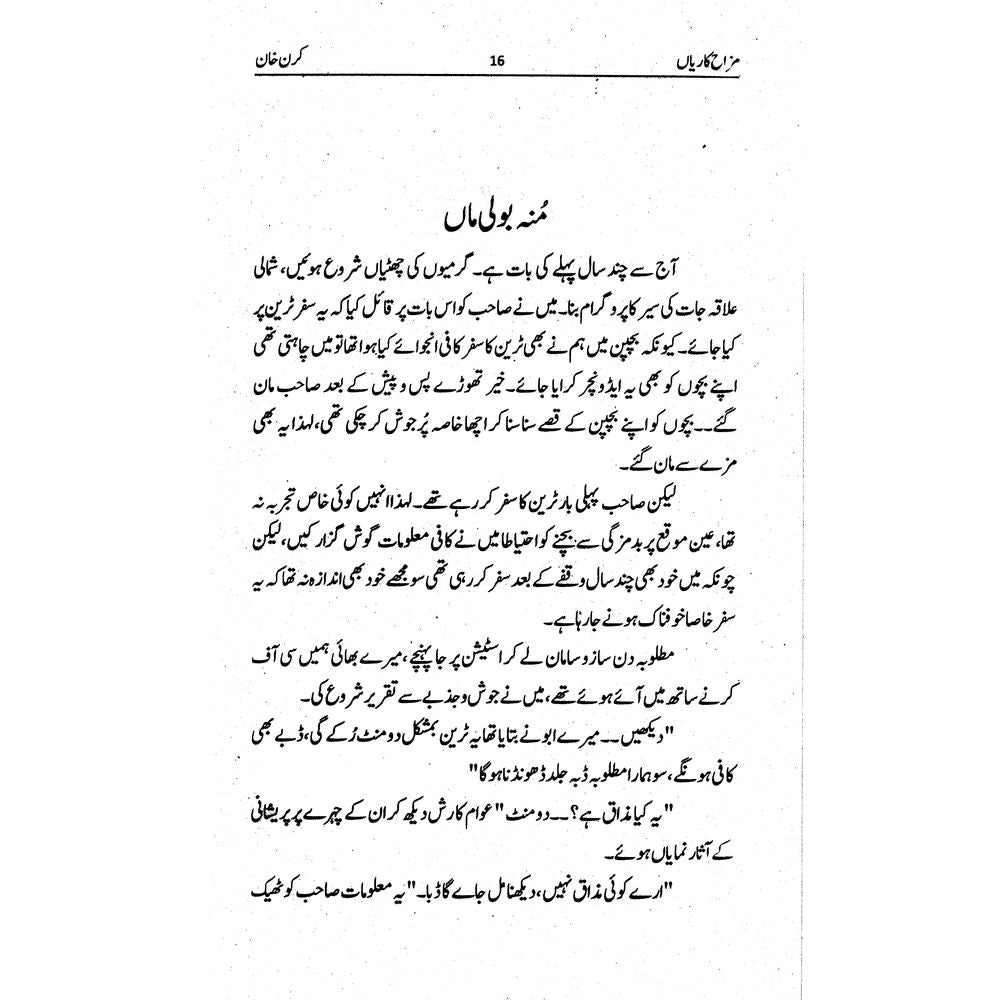 مزاح کاریاں 16 کرن خان
مُنہ بولی ماں
آج سے چند سال پہلے کی بات ہے۔ گرمیوں کی چھٹیاں شروع ہوئیں، شمالی
علاقہ جات کی سیر کا پروگرام بنا۔ میں نے صاحب کو اس بات پر قائل کیا کہ یہ سفر ٹرین پر
کیا جائے۔ کیونکہ بچپن میں ہم نے بھی ٹرین کا سفر کافی انجوائے کیا ہوا تھا تو میں چاہتی تھی
اپنے بچوں کو بھی یہ ایڈونچر کرایا جائے۔ خیر تھوڑے پس و پیش کے بعد صاحب مان
گئے۔۔ بچوں کو اپنے بچپن کے قصے سنا سنا کر اچھا خاصہ پُر جوش کر چکی تھی، لہذا یہ بھی
مزے سے مان گئے۔
لیکن صاحب پہلی بار ٹرین کا سفر کر رہے تھے۔ لہذا انہیں کوئی خاص تجربہ نہ
تھا، عین موقع پر بدمزگی سے بچنے کو احتیاطا میں نے کافی معلومات گوش گزار کیں، لیکن
چونکہ میں خود بھی چند سال وقفے کے بعد سفر کر رہی تھی سو مجھے خود بھی اندازہ نہ تھا کہ یہ
سفر خاصا خوفناک ہونے جا رہا ہے۔
مطلوبہ دن ساز و سامان لے کر اسٹیشن پر جا پہنچے، میرے بھائی ہمیں سی آف
کرنے ساتھ میں آئے ہوئے تھے، میں نے جوش و جذبے سے تقریر شروع کی۔
"دیکھیں۔۔ میرے ابو نے بتایا تھا یہ ٹرین بمشکل دو منٹ رُکے گی، ڈبے بھی
کافی ہونگے، سو ہمارا مطلوبہ ڈبہ جلد ڈھونڈنا ہوگا"
"یہ کیا مذاق ہے؟۔۔ دو منٹ" عوام کا رش دیکھ کر ان کے چہرے پر پریشانی
کے آثار نمایاں ہوئے۔
"ارے کوئی مذاق نہیں، دیکھنا مل جاے گا ڈبا۔" یہ معلومات صاحب کو ٹھیک